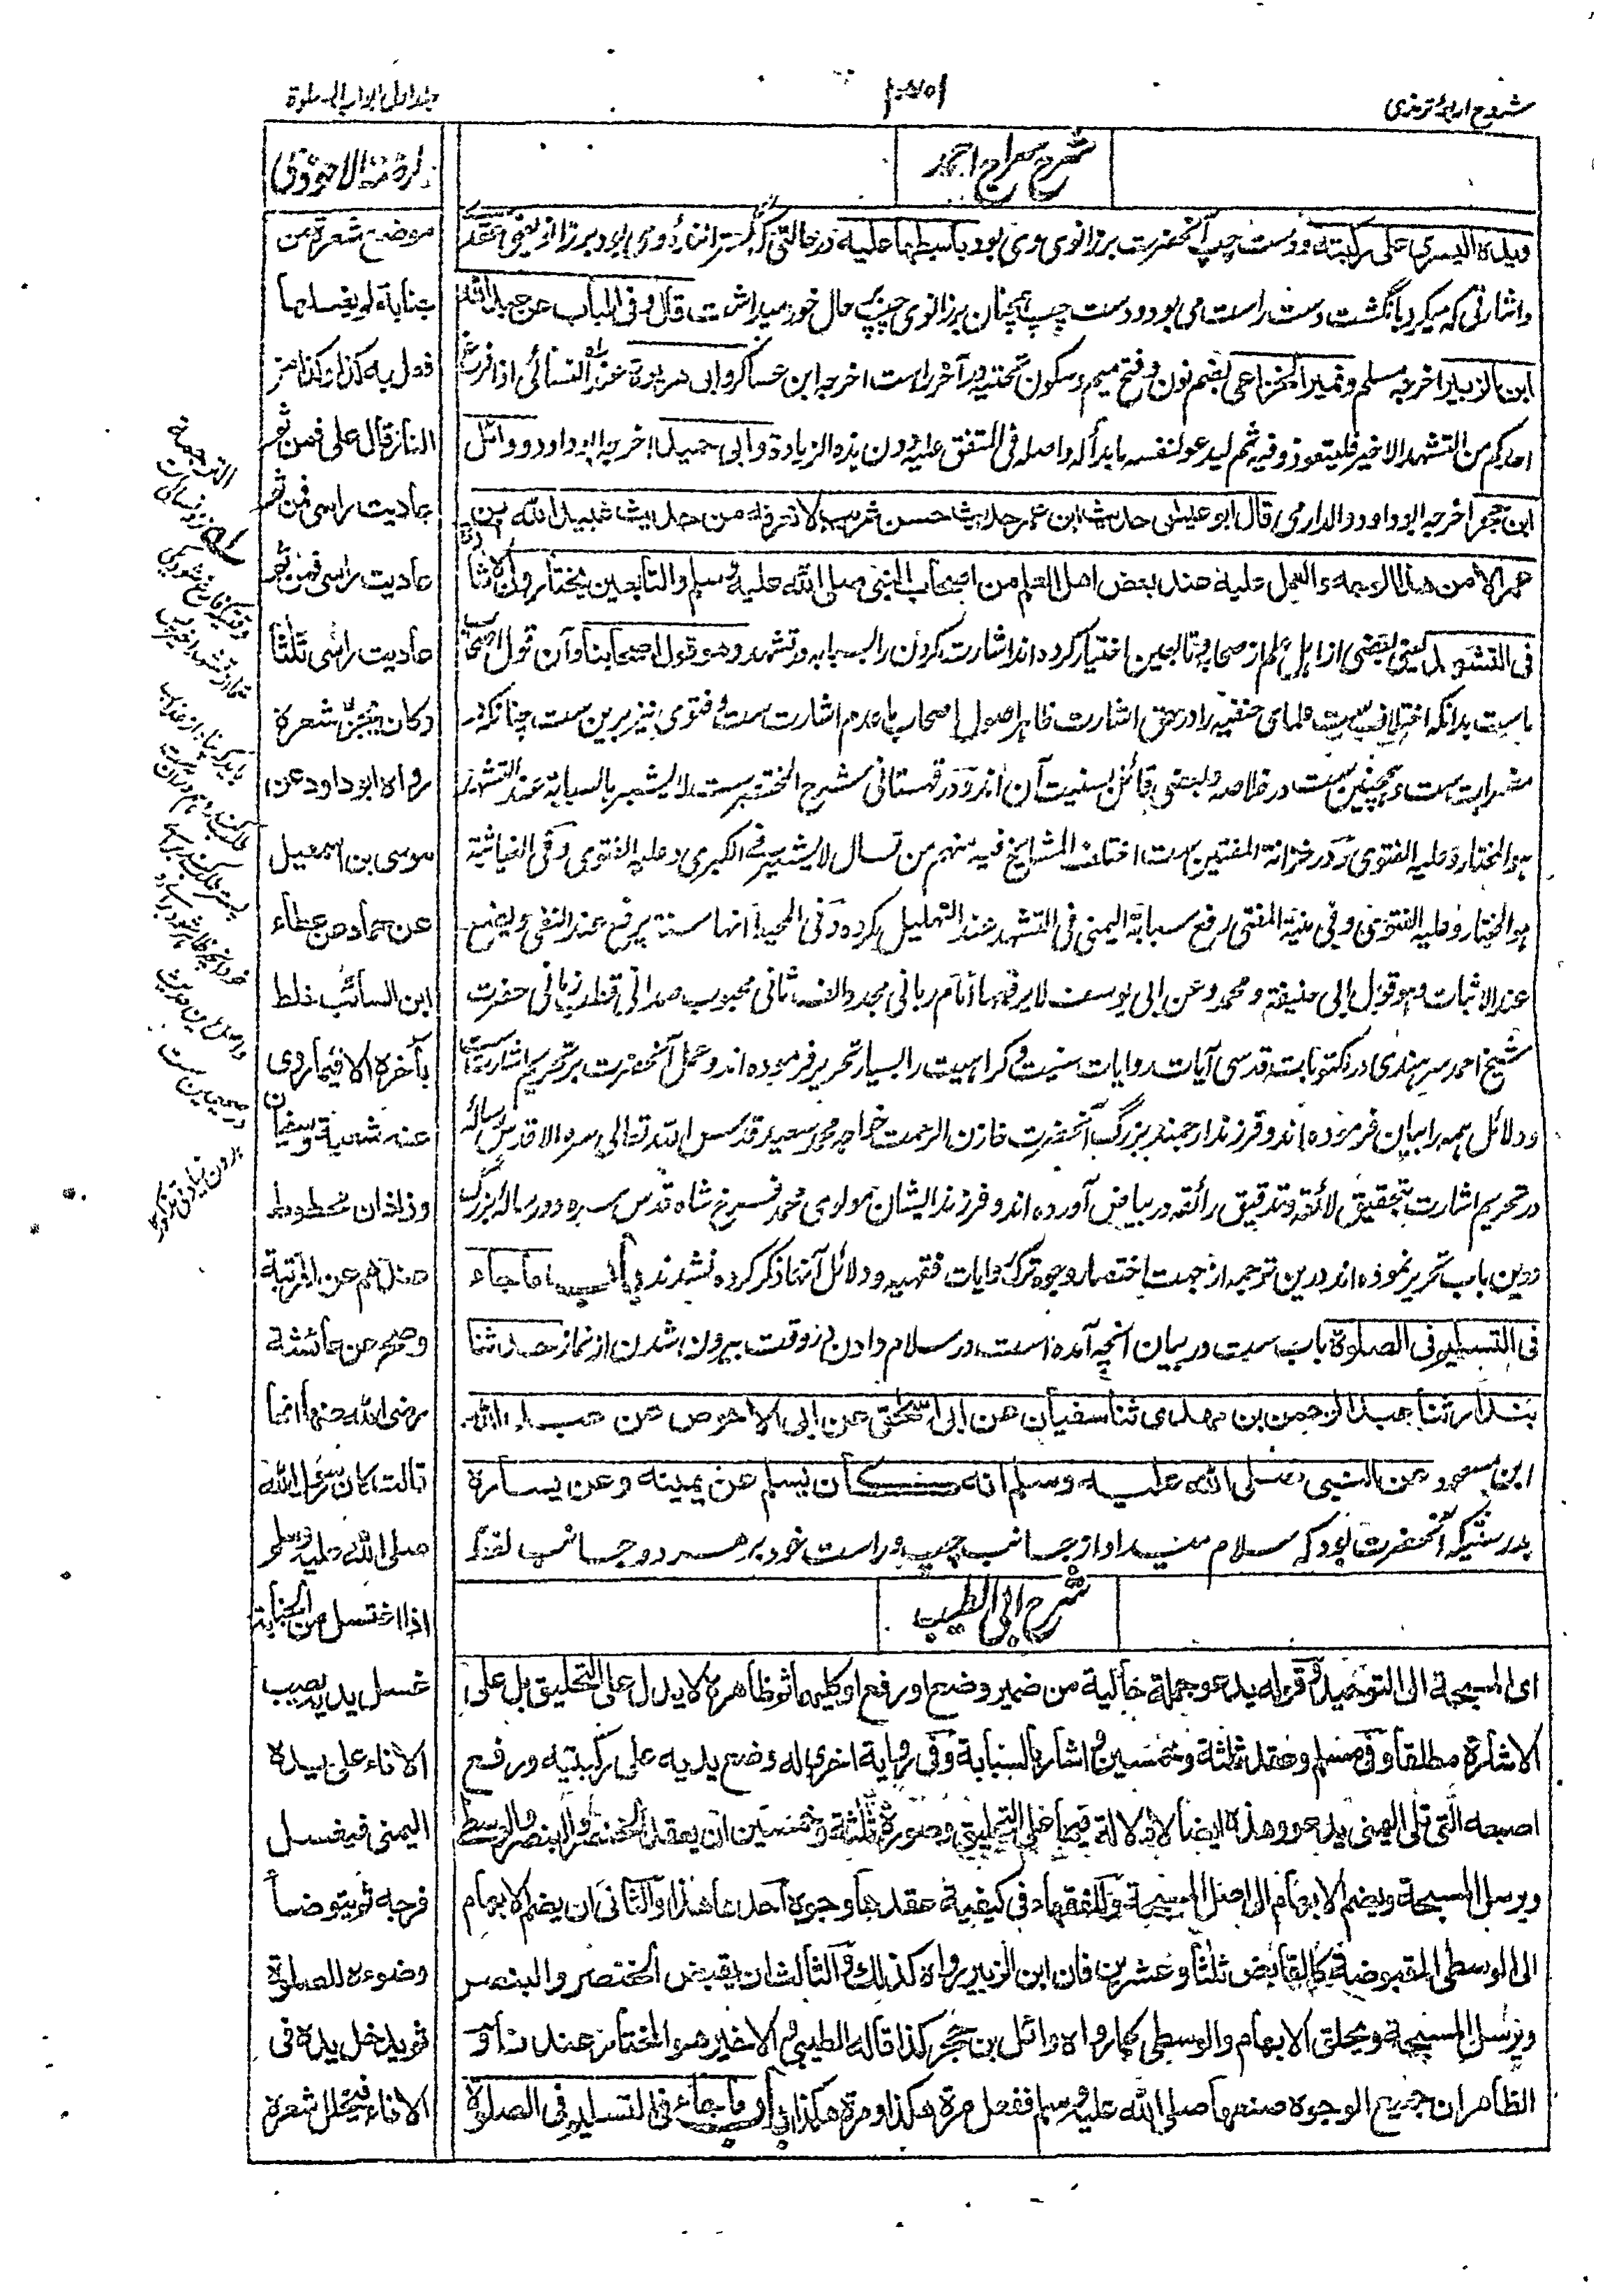 شروح اربعۂ ترمذی
جلد اول ابواب الصلوة
شرح سراج احمد
ویده الیسری علی رکبته ودست چپ آنحضرت بر زانوی وی بود باسطها علیه در حالتی که
واشارتی که میکرد بانگشت دست راست می بود ودست چپ همچنان بر زانوی چپ بر حال خود میداشت قال وفی الباب عن عبد الله
ابن الزبیر اخرجه مسلم ونمیر الخزاعی بضم نون وفتح میم وسکون تحتیه ودر آخر راست اخرجه ابن عساکر وابی هریرة عند النسائی اذا فرغ
احدکم من التشهد الاخیر فلیتعوذ وفیه ثم لیدعو لنفسه ما بدأ له واصله فی المتفق علیه دون هذه الزیادة وابی حمید اخرجه ابو داود ووائل
ابن حجر اخرجه ابو داود والدارمی قال ابو عیسی حدیث ابن عمر حدیث حسن غریب لا نعرفه من حدیث عبید الله بن
عمر الا من هذا الوجه والعمل علیه عند بعض اهل العلم من اصحاب النبی صلی الله علیه وسلم والتابعین یختارون الاشارة
فی التشهد یعنی بعضی از اهل علم از صحابه وتابعین اختیار کرده اند اشارت کردن را بسبابه در تشهد وهو قول اصحابنا وآن قول اصحاب
ماست بدانکه اختلاف ست علمای حنفیه را در حق اشارت ظاهر اصول اصحاب ما عدم اشارت ست وفتوی نیز برین ست چنانکه در
مضمرات ست وهمچنین ست در خلاصه وبعضی قائل بسنیت آن اند ودر قهستانی شرح المختصر ست لا یشیر بالسبابة عند التشهد
هو المختار وعلیه الفتوی ودر خزانة المفتین ست اختلف المشایخ فیه منهم من قال لا یشیر فی الکبری وعلیه الفتوی وفی الغیاثیة
هو المختار وعلیه الفتوی وفی منیة المفتی رفع سبابة الیمنی فی التشهد عند التهلیل یکره وفی المحیط انها سنة یرفع عند النفی ویضع
عند الاثبات وهو قول ابی حنیفة ومحمد وعن ابی یوسف لا یرفعها امام ربانی مجدد الف ثانی محبوب صمدانی قطب زمانی حضرت
شیخ احمد سرهندی در مکتوبات قدسی آیات روایات سنیت وکراهیت را بسیار تحریر فرموده اند وعمل آنحضرت بر تحریم اشارت ست
ودلائل همه را بیان فرموده اند وفرزند ارجمند بزرگ آنحضرت خازن الرحمت خواجه محمد سعید قدس الله تعالی سره الاقدس رساله
در تحریم اشارت بتحقیق لائقه وتدقیق رائقه در بیاض آورده اند وفرزند ایشان مولوی محمد فرخ شاه قدس سره دو رساله بزرگ
درین باب تحریر نموده اند درین ترجمه از جهت اختصار وجوه ترک روایات فقهیه ودلائل آنها ذکر کرده نشدند باب ما جاء
فی التسلیم فی الصلوة باب ست در بیان آنچه آمده است در سلام دادن نزد وقت بیرون شدن از نماز حدثنا
بندار ثنا عبد الرحمن بن مهدی ثنا سفیان عن ابی اسحق عن ابی الاحوص عن عبد الله
ابن مسعود عن النبی صلی الله علیه وسلم انه کان یسلم عن یمینه وعن یساره
بدرستیکه آنحضرت بود که سلام میداد از جانب چپ وراست خود بر هر دو جانب لفظ
شرح ابی الطیب
ای المسبحة الی التوحید وقوله یدعو جملة حالیة من ضمیر وضع او رفع او کلیهما ثم ظاهره لا یدل علی التحلیق بل علی
الاشارة مطلقا وفی مسلم وعقد ثلثة وخمسین واشار بالسبابة وفی روایة اخری له وضع یدیه علی رکبتیه ورفع
اصبعه التی تلی الیمنی یدعو وهذه ایضا لا دلالة فیها علی التحلیق وصورة ثلثة وخمسین ان یعقد الخنصر والبنصر والوسطی
ویرسل المسبحة ویضم الابهام الی اصل المسبحة وللفقهاء فی کیفیة عقدها وجوه احدها هذا والثانی ان یضم الابهام
الی الوسطی المقبوضة کالقابض ثلثا وعشرین فان ابن الزبیر رواه کذلک والثالث ان یقبض الخنصر والبنصر
ویرسل المسبحة ویحلق الابهام والوسطی کما رواه وائل بن حجر کذا قاله الطیبی والاخیر هو المختار عندنا و
الظاهر ان جمیع الوجوه صنعها صلی الله علیه وسلم ففعل مرة هکذا ومرة هکذا باب ما جاء فی التسلیم فی الصلوة
موضع شعرة من
جنابة لم یغسلها
فعل به کذا وکذا من
النار قال علی فمن ثم
عادیت راسی فمن ثم
عادیت راسی فمن ثم
عادیت راسی ثلثا
وکان یجز شعره
رواه ابو داود عن
موسی بن اسمعیل
عن حماد عن عطاء
ابن السائب خلط
بآخره الا فیما روی
عنه شعبة وسفیان
وزاذان
وصح عن عائشة
رضی الله عنها انها
قالت کان رسول الله
صلی الله علیه وسلم
اذا اغتسل من الجنابة
غسل یدیه یصب
الاناء علی یده
الیمنی فیغسل
فرجه ثم یتوضأ
وضوءه للصلوة
ثم یدخل یده فی
الاناء فیخلل شعره